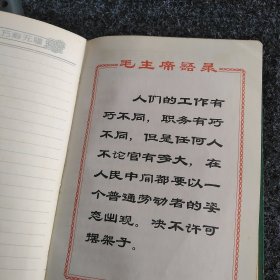 毛主席语录
人们的工作有
巧不同，职务有巧
不同，但是任何人
不论官有多大，在
人民中间都要以一
个普通劳动者的姿
态出现。决不许可
摆架子。